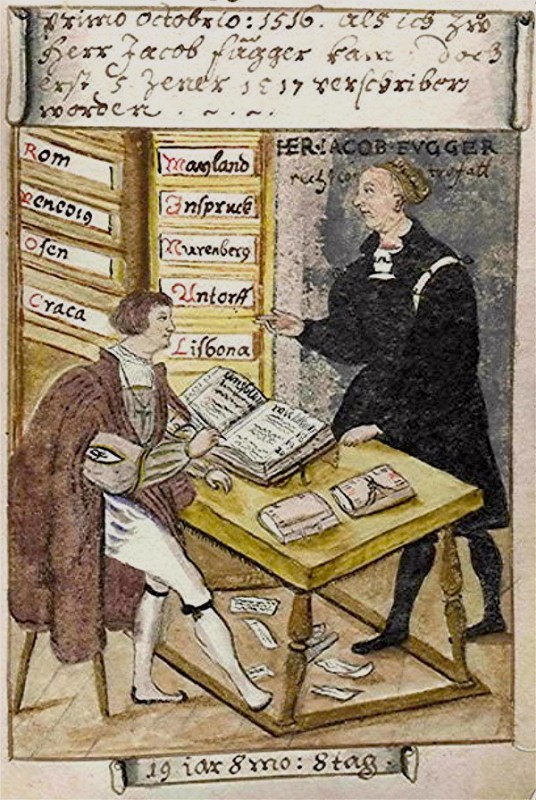 primo octobrio: 1516. als ich zů
Herr Jacob fugger kam. doch
erst 5 Jener 1517 verschriben
worden . ~ . ~ .
HER: IACOB FVGGER
Rom
Venedig
Ofen
Craca
Mayland
Inspruck
Nurenberg
Antorff
Lisbona
19 iar 8 mo: 8 tag.